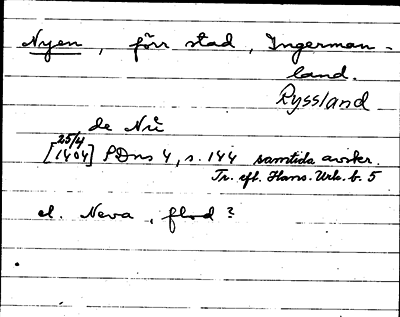 Nyen, förr stad, Ingerman-
land.
Ryssland
de Nü
25/4
[1404] PDns 4, s. 144 samtida avskr.
Tr. eft. Hans. Urk. b. 5
el. Neva, flod?